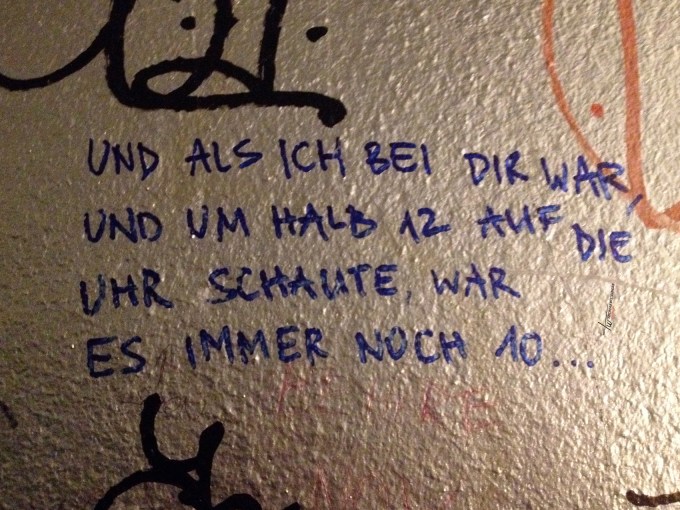 UND ALS ICH BEI DIR WAR,
UND UM HALB 12 AUF DIE
UHR SCHAUTE, WAR
ES IMMER NOCH 10...